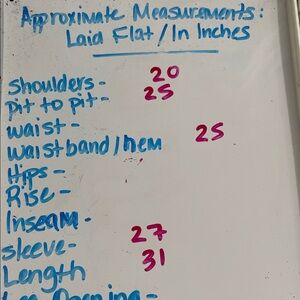 Approximate Measurements:
Laid Flat/In Inches
Shoulders - 20
Pit to pit - 25
waist -
waistband/hem 25
Hips -
Rise -
Inseam -
sleeve - 27
Length 31
Leg Opening -